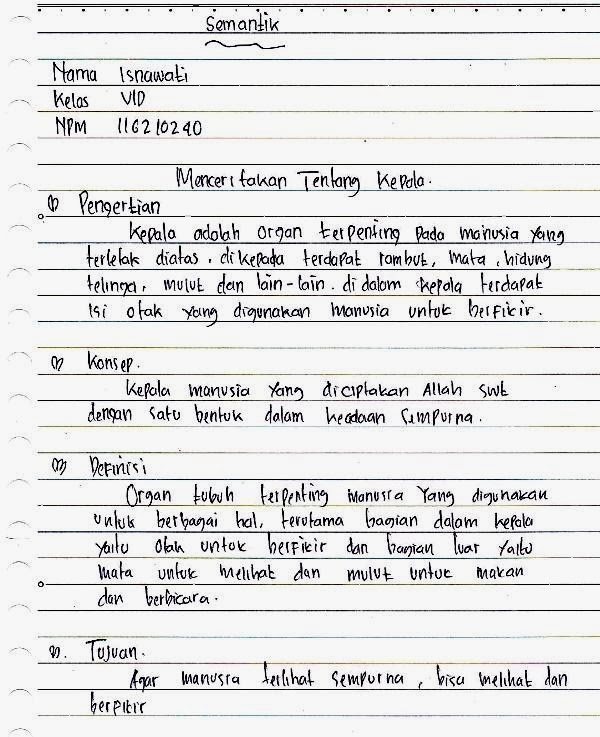 Semantik
Nama Isnawati
Kelas VID
NPM 116210240
Menceritakan Tentang Kepala.
Pengertian
Kepala adalah organ terpenting pada manusia yang
terletak diatas, dikepada terdapat rambut, mata, hidung
telinga, mulut dan lain-lain. di dalam kepala terdapat
isi otak yang digunakan manusia untuk berfikir.
Konsep.
Kepala manusia yang diciptakan Allah swt
dengan satu bentuk dalam keadaan sempurna.
Definisi
Organ tubuh terpenting manusia yang digunakan
untuk berbagai hal, terutama bagian dalam kepala
yaitu otak untuk berfikir dan bagian luar yaitu
mata untuk melihat dan mulut untuk makan
dan berbicara.
Tujuan.
Agar manusia terlihat sempurna, bisa melihat dan
berfikir